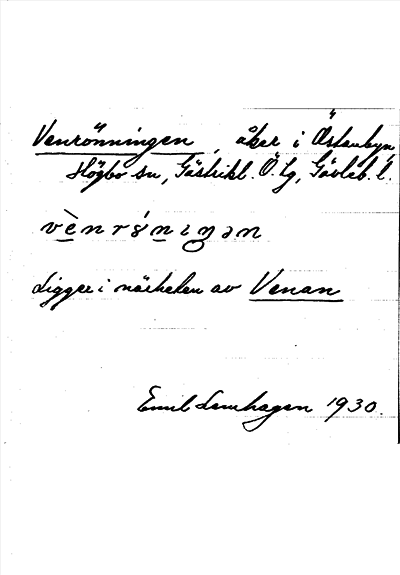 Venrönningen, åker i Östanbyn,
Högbo sn, Gästrikl. Ö. Lg, Gävleb. l.
Ligger i närheten av Venan
Emil Lemhagen 1930.